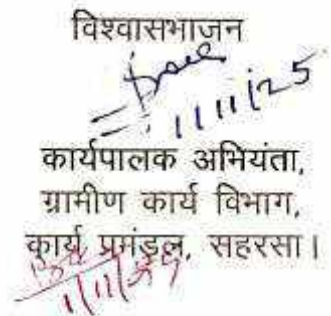 विश्वासभाजन
11/11/25
कार्यपालक अभियंता,
ग्रामीण कार्य विभाग,
कार्य प्रमंडल, सहरसा।